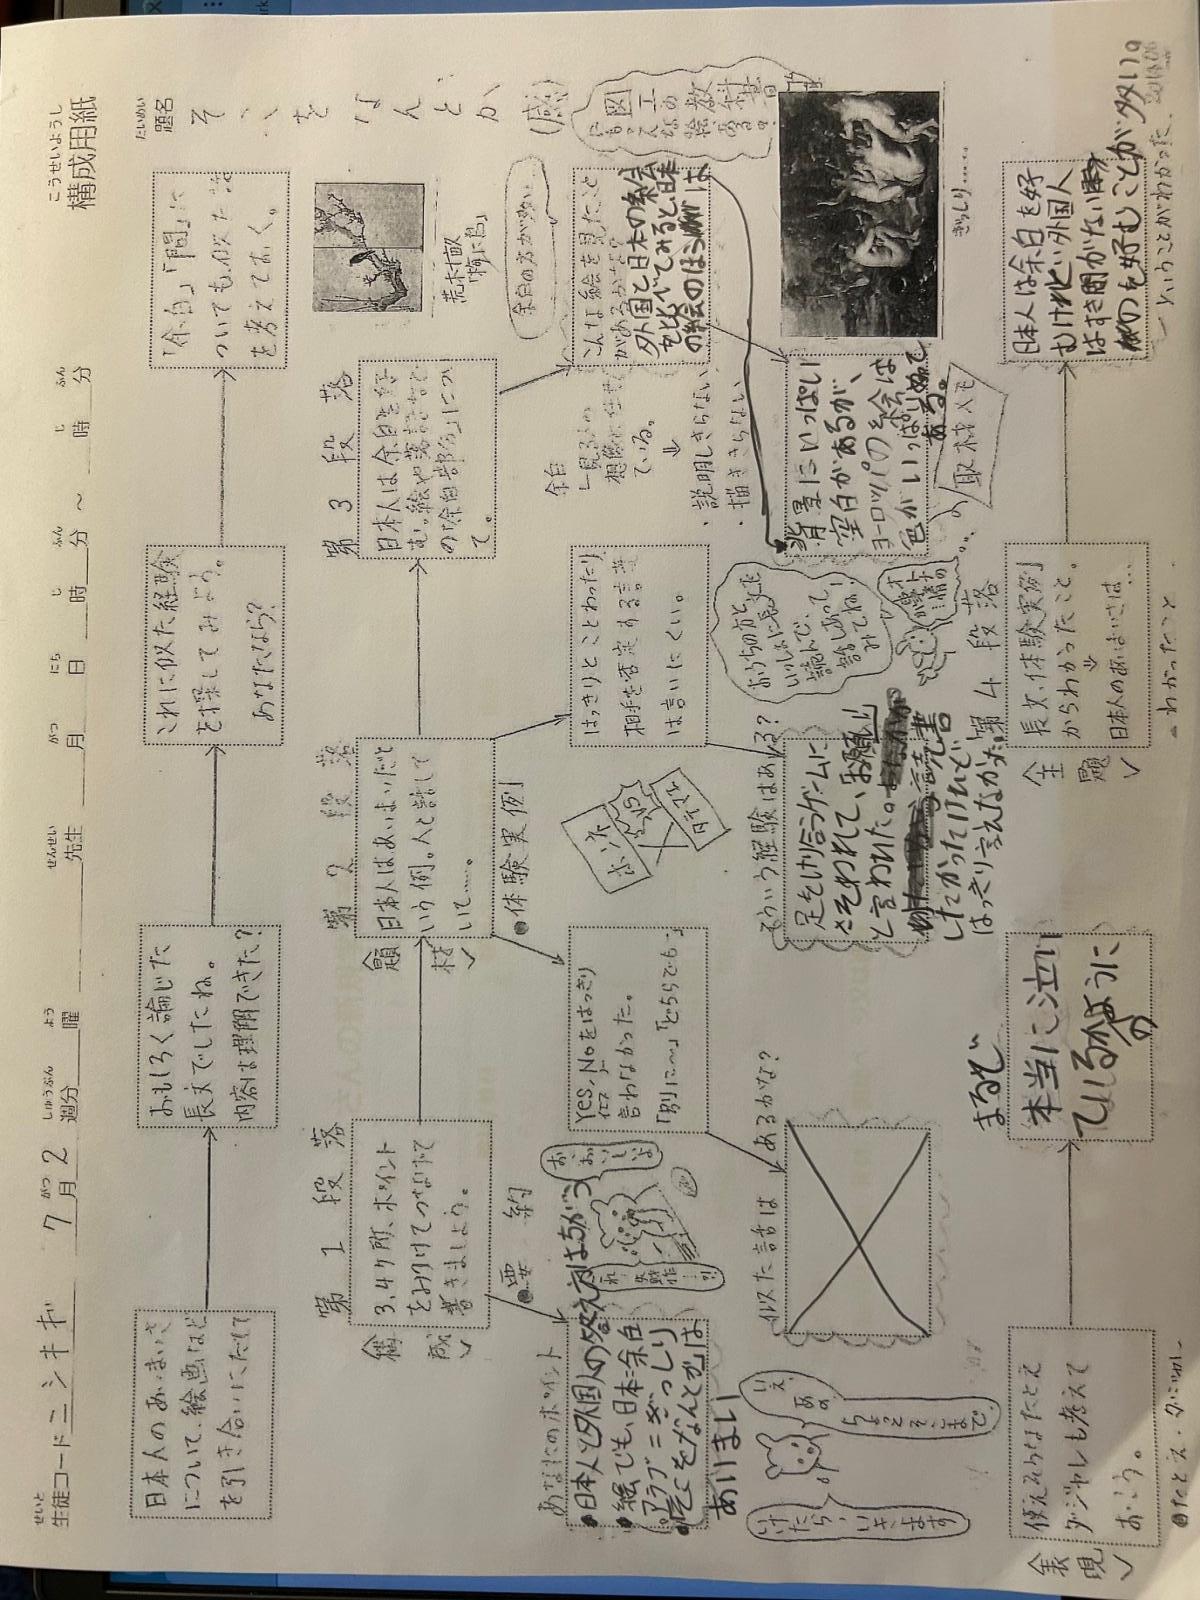 こうせいようし
構成用紙
せいと
生徒コード ニシキギ 7月2週分 先生 月 日 時 分 ～ 時 分
がつ しゅうぶん よう せんせい がつ にち じ ふん じ ふん
曜
だいめい
題名
そこをなんとか
(感)
日本人のあいまいさ
について、絵画など
を引き合いにだして
おもしろく論じた
長文でしたね。
内容は理解できた?
これに似た経験
を探してみよう。
あなたなら?
「余白」「間」に
ついても似た
を考えておく。
第1段落
構成
3、4ヶ所、ポイント
をみつけてつなげて
書きましょう。
●要約
第2段落
題材
日本人はあいまいだと
いう例。人と話して
いて……。
●体験実例
第3段落
日本人は余白を好
む。絵や落語など
の「余白部分」につい
て。
荒木十畝
「梅に鳥」
余白の方が
あなたのポイント
●日本人と外国人の答え方はちがう
●絵でも、日本=余白
アラブ=ぎっしり
●「そこをなんとか」は
あいまい
Yes,Noをはっきり
言わなかった。
「別に〜」「どちらでも…」
はっきりとことわったり
相手を否定する言葉
は言いにくい。
こんな絵を見たこと
があるかな?
外国と日本の絵
をくらべてみると日本
の絵のほうが は
図工の教科書
余白
見る人の
想像に任せ
ている。
⇓
・説明しきらない
・描ききらない
似た話は
あるかな?
そういう経験はある?
足をけり合うゲームに
さそわれて、「お願い」
と言われた。
読書
したかったけれど
はっきり言えなかった。
おうちの方と
いっしょに長文を
読んで、
話しあって
みてね!
背景にいっぱい
空白があるが、
ヨーロッパの絵は
色がいっぱいぬって
ある。
取材メモ
ぎっしり……
いえ、
あの
ちょっとそこまで。
いけたら、いきます
表現
使えそうなたとえ
ダジャレも考えて
おこう。
●たとえ・ダジャレ
まるで
本当に泣い
ているかの
ように
第4段落
主題
長文、体験実例
からわかったこと。
⇓
日本人のあいまいさは…
わかったこと
日本人は余白を好
むけれど、外国人
はすき間がない
ものを好むことが多い。
ということがわかった。